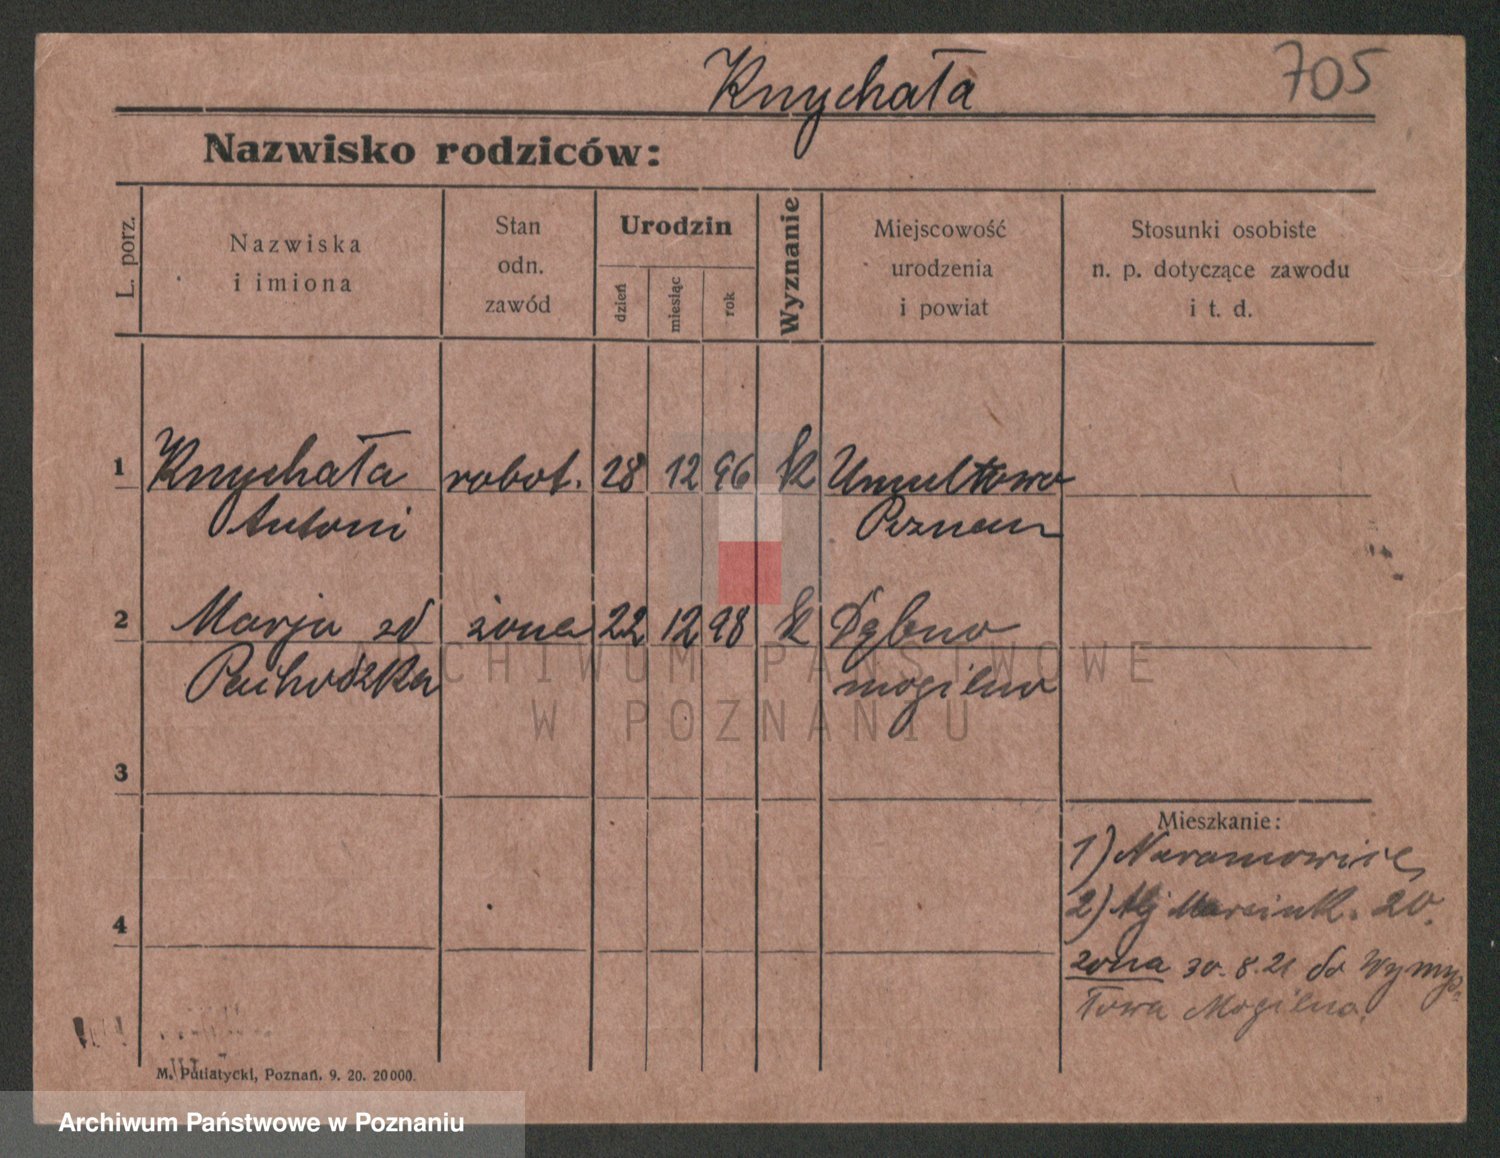 Knychała 705
Nazwisko rodziców:
L. porz.
Nazwiska
i imiona
Stan
odn.
zawód
Urodzin
dzień
miesiąc
rok
Wyznanie
Miejscowość
urodzenia
i powiat
Stosunki osobiste
n. p. dotyczące zawodu
i t. d.
1 Knychała robot. 28 12 96 k Umultowo
Antoni Poznań
2 Marja zd żona 22 12 98 k Dębno
mogilno
ARCHIWUM PAŃSTWOWE
W POZNANIU
3
Mieszkanie:
1) Naramowice,
2) Alj Marcink. 20.
4
żona 30. 8. 21 do Wymys-
łowa Mogilno.
M. Putiatycki, Poznań. 9. 20. 20000.
Archiwum Państwowe w Poznaniu